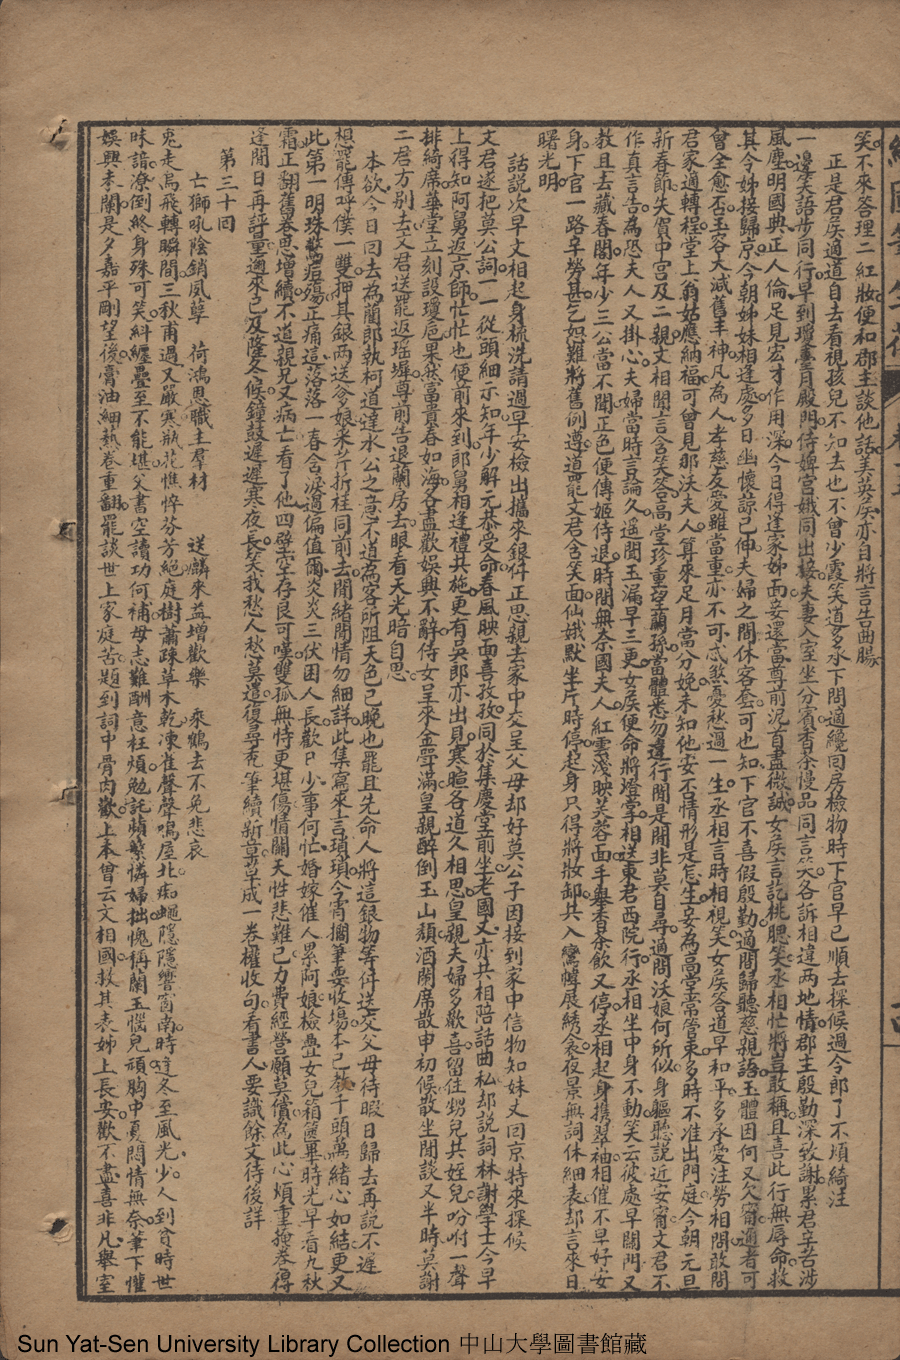 笑不來答理二紅妝便和郡主談他話美英侯亦自將言告曲腸
正是君侯適道自去看視孩兒不知去也不曾少霞笑道多承下問適纔回房檢物時下官早已順去探候過今郎了不煩綺注
一邊笑語步同行早到瓊臺月殿門侍婢宮娥同出接夫妻入室坐分賓香茶慢品同言笑各訴相違兩地情郡主殷勤深致謝累君辛苦涉
風塵明國典正人倫足見宏才作用深今日得逢家姊面妾還當尊前泥首盡微誠女侯言訖桃腮笑丞相忙將豈敢稱且喜此行無辱命救
其令姊接歸京今朝姊妹相逢處多日幽懷諒已伸夫婦之間休客套可也知下官不喜假殷勤適間歸聽慈親語玉體因何又欠甯適者可
曾全愈否玉容大減舊丰神凡為人孝慈友愛雖當重亦不可忒煞憂愁過一生丞相言時相視笑女侯答道早和平多承愛注勞相問敢問
君家適轉程堂上翁姑應納福可曾見那沃夫人算來足月當分娩未知他安不情形是怎生妾為高堂常管束多時不准出門庭今朝元旦
新春節失賀中宮及二親文相聞言含笑答高堂珍重望蘭孫當體悉勿違行聞是聞非莫自尋適問沃娘何所似身軀聽說近安甯文君不
作真言告為恐夫人又掛心夫婦當時言論久遙聞玉漏早三更女侯便命將燈掌相送東君西院行丞相坐中身不動笑云彼處早關門又
教且去藏春閣年少三公當不聞正色便傳姬侍退時間無奈國夫人紅雲淺映芙蓉面手舉香茶飲又停丞相起身攜翠袖相催不早好安
身下官一路辛勞甚乞恕難將舊例遵道罷文君含笑面仙娥默坐片時停起身只得將妝卸共入鸞幃展綉衾夜景無詞休細表却言來日
曙光明
話說次早文相起身梳洗請過早安檢出攜來銀件正思親士家中交呈父母却好莫公子因接到家中信物知妹丈回京特來探候
文君遂把莫公詞一一從頭細示知年少解元恭受命春風映面喜孜孜同於集慶堂前坐老國丈亦共相陪話曲私却說詞林謝學士今早
上得知阿舅返京師忙忙也便前來到郎舅相逢禮共施更有吳郎亦出見寒暄各道久相思皇親夫婦多歡喜留住甥兒共姪兒吩咐一聲
排綺席華堂立刻設瓊卮果然富貴春如海各盡歡娛興不辭侍女呈來金斝滿皇親醉倒玉山頹酒闌席散申初候散坐閒談又半時莫謝
二君方别去文君送罷返瑤墀尊前告退蘭房去眼看天光暗自思
本欲今日回去為蘭郎執柯道達水公之意不道為客所阻天色已晚也罷且先命人將這銀物等件送交父母待暇日歸去再說不遲
想罷傳呼僕一雙押其銀兩送爺娘米岸折柱同前去閒緒閒情勿細詳此集寫來言瑣瑣今宵擱筆要收場本已教千頭萬緒心如結更又
此第一明珠驚痘殤正痛這落落一春含淚過偏值爾炎炎三伏困人長歡戶少事何忙婚嫁催人累阿娘檢疊女兒箱篋畢時光早看九秋
霜正翻舊卷思增續不道親兄又病亡看了他四壁空存良可嘆雙孤無恃更堪傷情關天性悲難已力費經營願莫償為此心煩重掩卷得
逢閒日再評量邇來已及隆冬候鐘鼓遲遲寒夜長笑我愁人愁莫遣復尋禿筆續新章草成一卷權收句看書人要識餘文待後詳
第三十回
亡獅吼陰銷夙孽　荷鴻恩職主羣材　送麟來益增歡樂　乘鶴去不免悲哀
兎走烏飛轉瞬間三秋甫過又嚴寒瓶花憔悴芬芳絕庭樹蕭疎草木乾凍雀聲聲鳴屋北痴蠅隱隱響窗南時逢冬至風光少人到貧時世
味諳潦倒終身殊可笑糾纏疊至不能堪父書空讀功何補母志難酬意枉煩勉託蘋蘩慚婦拙愧稱蘭玉惱兒頑胸中戛悶情無奈筆下權
娛興未闌是夕嘉平剛望後膏油細熱卷重翻罷談世上家庭苦題到詞中骨肉歡上本曾云文相國救其表姊上長安歡不盡喜非凡舉室
Sun Yat-Sen University Library Collection 中山大學圖書館藏